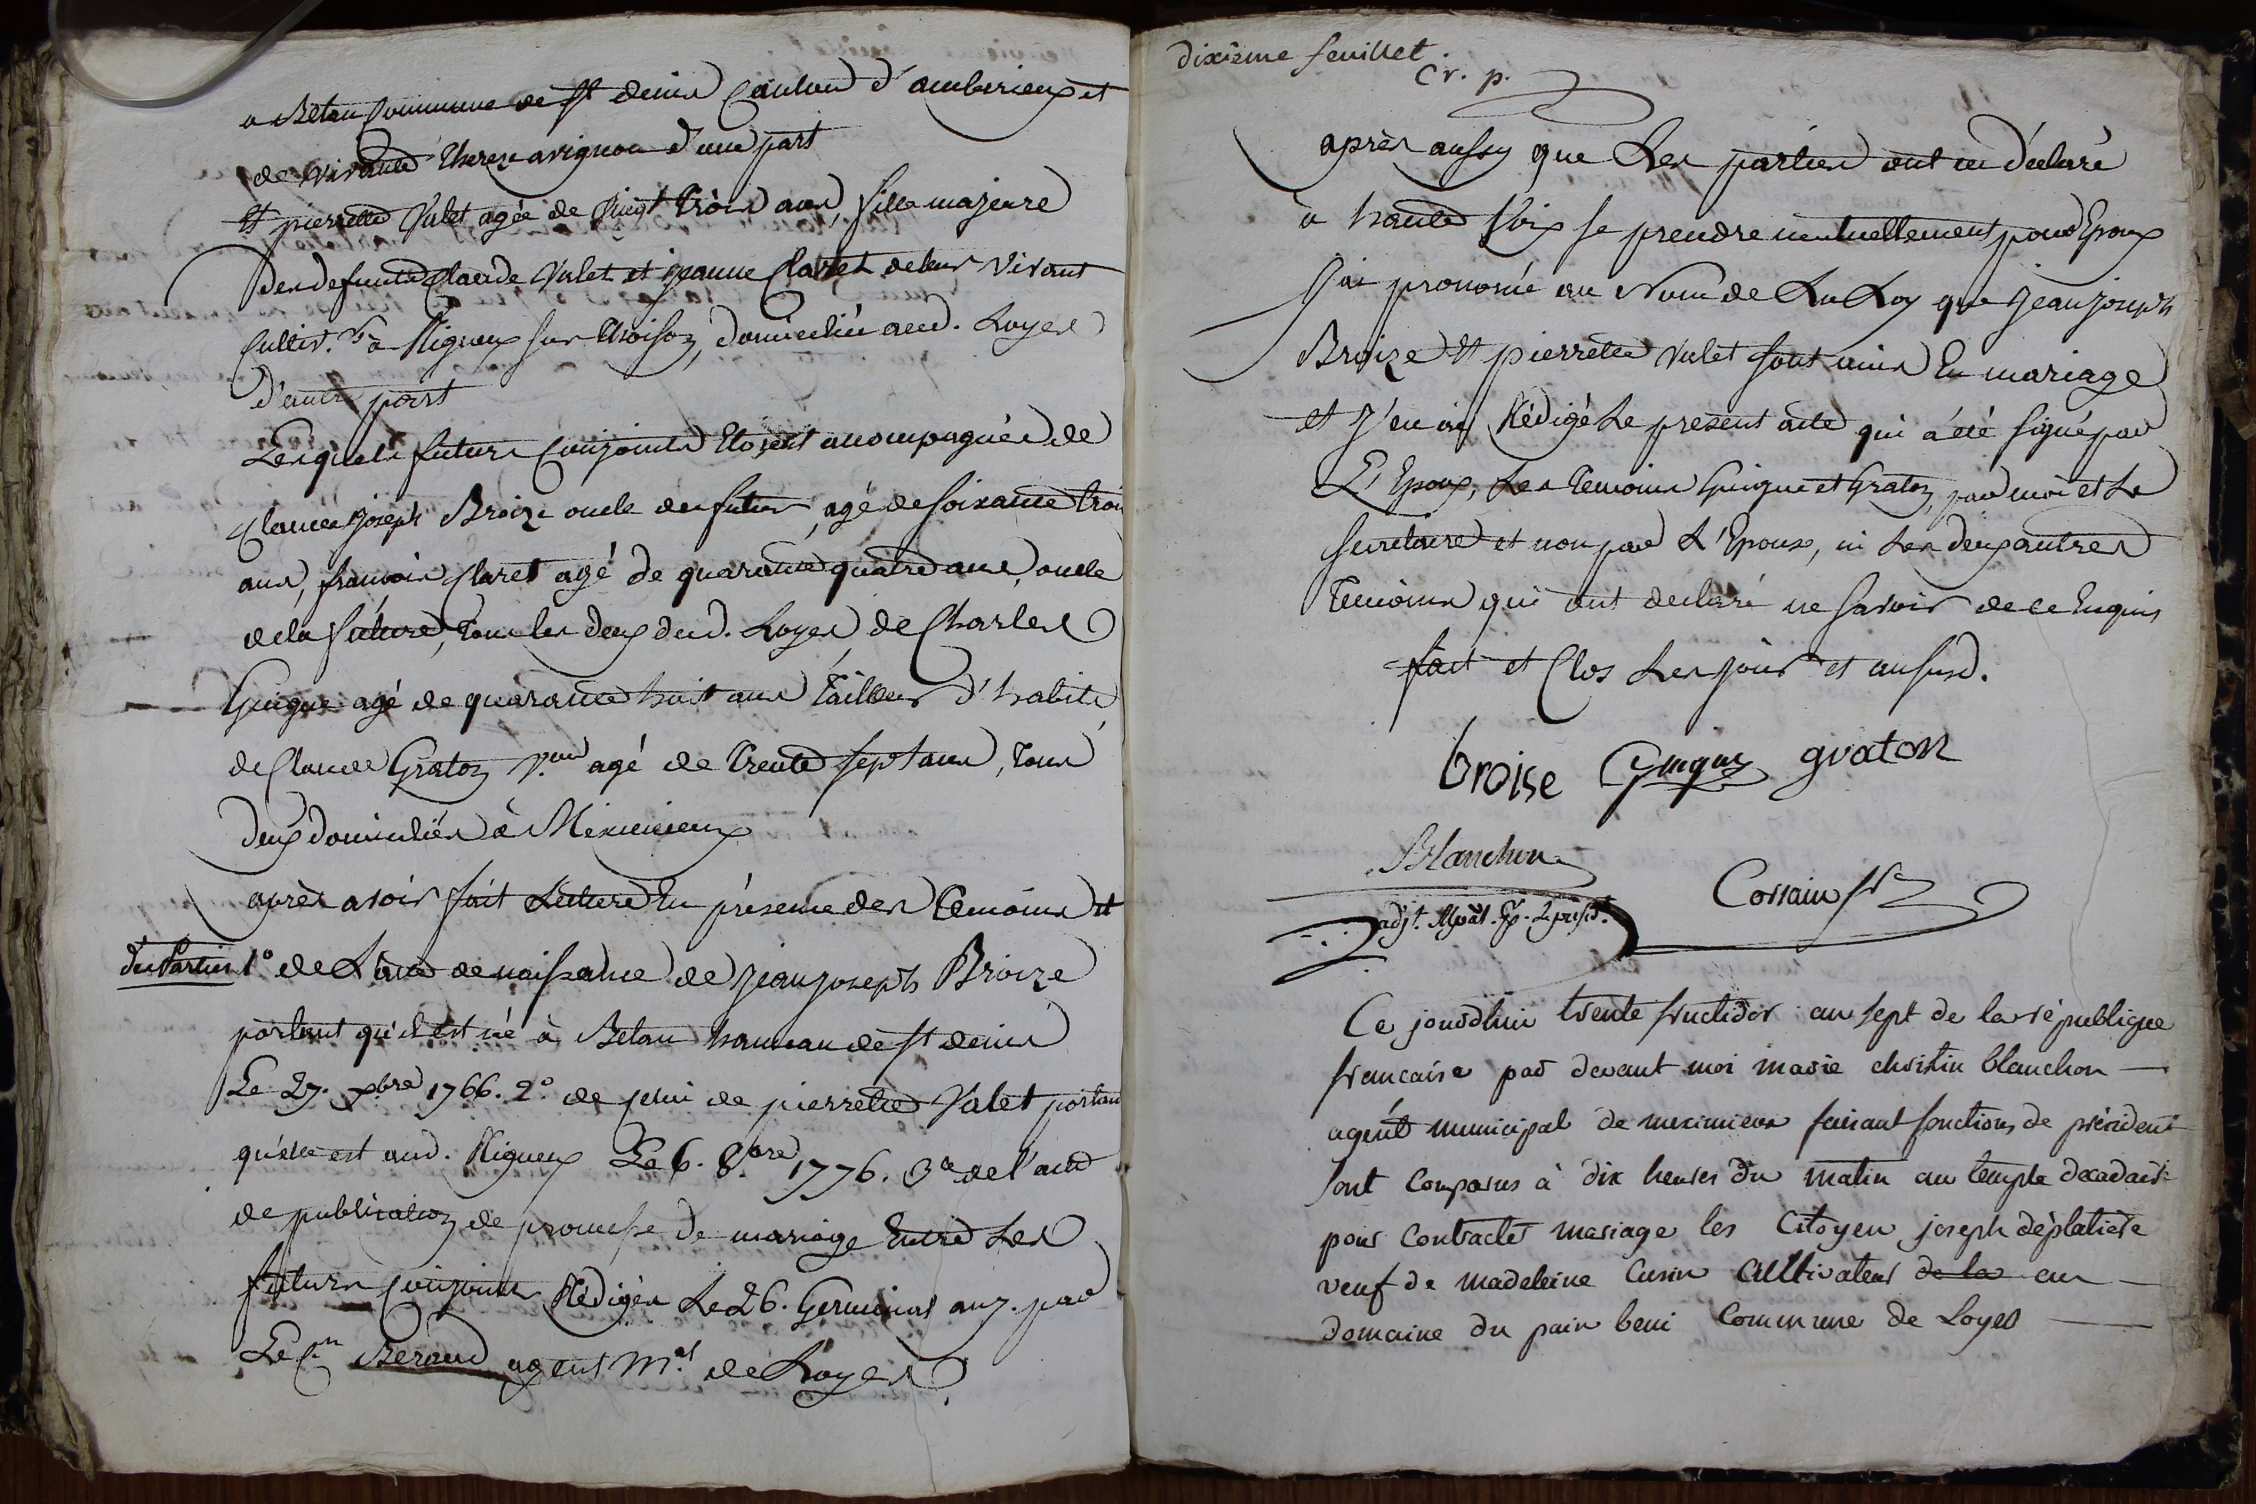 a Betan Commune de St denis Canton d'amberieux et
de vivante Therese avignon d'une part
Et pierrette Valet, agée de Vingt trois ans, fille majeure
des defunts Claude Valet et jeanne Claret de leur vivant
Cultiv.rs à Rigneux sur Choison, domiciliée aud. Loyes
d'autre part
Lesquels futurs Conjoints Etoient accompagnés de
Claude joseph Broize oncle du futur, agé de soixante trois
ans, francois Claret agé de quarante quatre ans, oncle
de la future, tous les deux dud. Loyes, de Charles
Guigue agé de quarante huit ans Tailleur d'habits,
de Claude Graton agé de trente sept ans, tous
deux domiciliés à Meximieux
après avoir fait Lecture En présence des temoins et
des Parties 1° de L'acte de naissance de jean joseph Broize
portant qu'il est né à Betan hameau de St denis
Le 27. xbre 1766. 2° de celui de pierrette Valet portant
qu'elle est aud. Rigneux Le 6. 8bre 1776. 3° de l'acte
de publication de promesse de mariage Entre Les
futurs Conjoints Rédigés Le 26. Germinal an 7. par
Le C.en Beraud agent M.al de Loyes
dixième feuillet.
Cr. p.
après aussy que Les parties ont eu déclaré
à haute Voix se prendre mutuellement pour Epoux
J'ai prononcé au Nom de La Loy que Jean joseph
Broize Et pierrette Valet sont unis En mariage
et J'en ai Rédigé Le present acte qui a été signé par
L'Epoux, Les temoins Guigue et Graton, par moi et Le
secretaire et non par L'Epouse, ni Les deux autres
temoins qui ont declaré ne savoir de ce Enquis
fait et Clos Les jour et an susd.
broise Guigue graton
Blanchon
adjt.
Corrain sre
Ce jourdhui trente fructidor an sept de la république
francaise par devant moi marie christin blanchon
agent municipal de meximieux faisant fonctions de président
sont Comparus à dix heures du matin au temple decadaire
pour Contracter mariage les Citoyen joseph déplatiere
veuf de madeleine Cusin Cultivateur de la au
domaine du pain beni Commune de Loyes